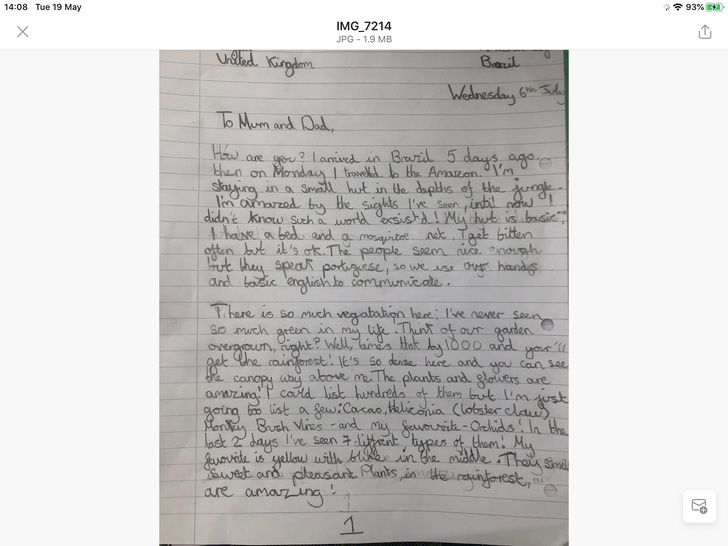 14:08 Tue 19 May
93%
IMG_7214
JPG - 1.9 MB
United Kingdom
Brazil
Wednesday 6th July
To Mum and Dad,
How are you? I arrived in Brazil 5 days ago,
then on Monday I travelled to the Amazon. I'm
staying in a small hut in the depths of the jungle.
I'm amazed by the sights I've seen, until now I
didn't know such a world exsist'd! My hut is basic;
I have a bed and a mosquitoe net. I get bitten
often but it's ok. The people seem nice enough
but they speak portugese, so we use our hands
and basic english to communicate.
There is so much vegatation here; I've never seen
so much green in my life. Think of our garden
overgrown, right? Well, times that by 1000 and your'll
get the rainforest! It's so dense here and you can see
the canopy way above me. The plants and flowers are
amazing! I could list hundreds of them but I'm just
going to list a few: Cacao, Heliconia (lobster claw)
Monkey Brush Vines - and my favourite - Orchids! In the
last 2 days I've seen 7 diffrent types of them! My
favourite is yellow with blue in the middle. They smell
sweet and pleasant. Plants, in the rainforest,
are amazing!
1